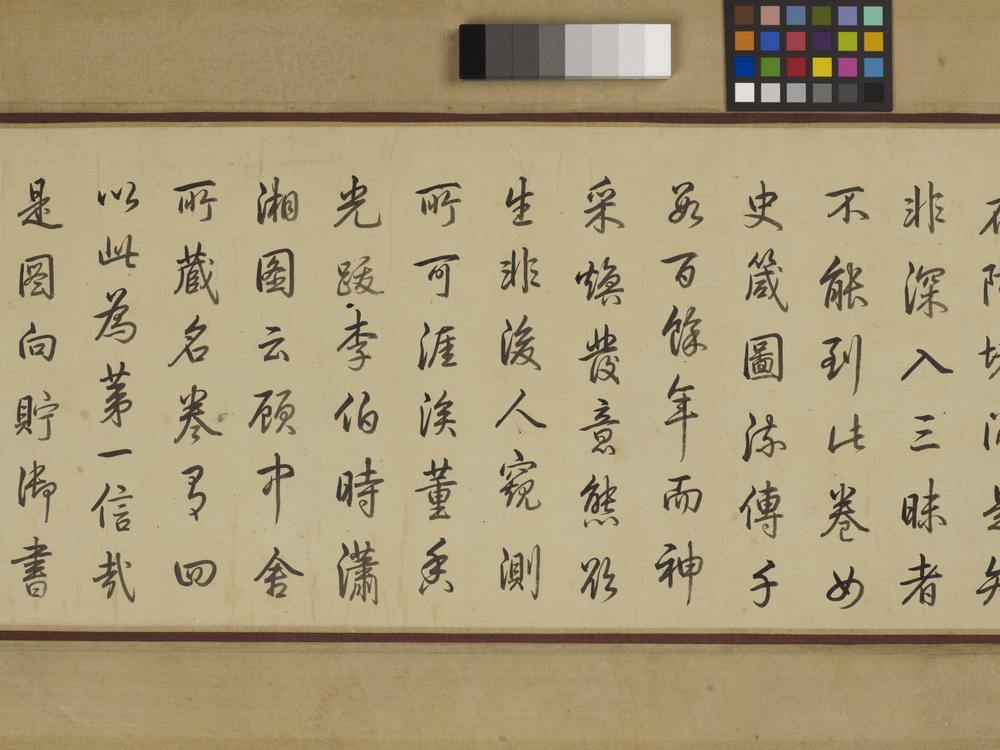 非深入三昧者
不能到此卷女
史箴圖流傳千
數百餘年而神
采煥發意態欲
生非後人窺測
所可涯涘董香
光跋李伯時瀟
湘圖云顧中舍
所藏名卷有四
以此為第一信哉
是圖向貯御書